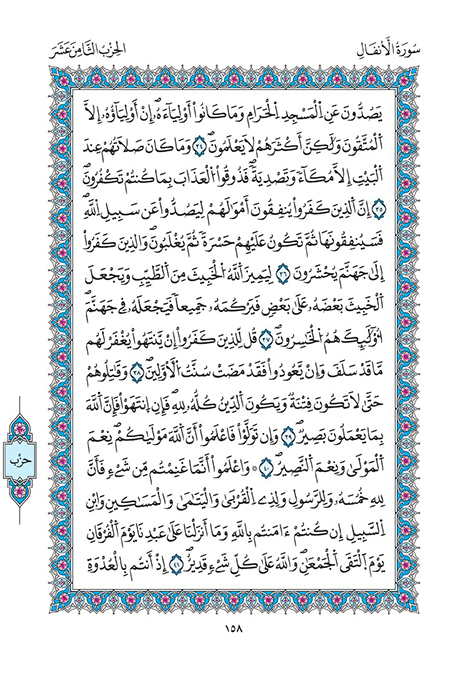 سُورَةُ الْأَنفَالِ
الحِزْبُ الثَّامِنَ عَشَرَ
يَصُدُّونَ عَنِ اِلْمَسْجِدِ اِلْحَرَامِ وَمَا كَانُوٓاْ أَوْلِيَآءَهُۥٓۖ إِنَ اَوْلِيَآؤُهُۥٓ إِلَّا
اَلْمُتَّقُونَۖ وَلَٰكِنَّ أَكْثَرَهُمْ لَا يَعْلَمُونَۖ ٣٤ وَمَا كَانَ صَلَاتُهُمْ عِندَ
اَلْبَيْتِ إِلَّا مُكَآءً وَتَصْدِيَةًۖ فَذُوقُواْ اُلْعَذَابَ بِمَا كُنتُمْ تَكْفُرُونَۖ
٣٥ إِنَّ اَلذِينَ كَفَرُواْ يُنفِقُونَ أَمْوَٰلَهُمْ لِيَصُدُّواْ عَن سَبِيلِ اِللَّهِۖ
فَسَيُنفِقُونَهَا ثُمَّ تَكُونُ عَلَيْهِمْ حَسْرَةً ثُمَّ يُغْلَبُونَۖ وَالذِينَ كَفَرُوٓاْ
إِلَىٰ جَهَنَّمَ يُحْشَرُونَ ٣٦ لِيَمِيزَ اَللَّهُ اُلْخَبِيثَ مِنَ اَلطَّيِّبِ وَيَجْعَلَ
اَلْخَبِيثَ بَعْضَهُۥ عَلَىٰ بَعْضٍ فَيَرْكُمَهُۥ جَمِيعاً فَيَجْعَلَهُۥ فِے جَهَنَّمَۖ
أُوْلَٰٓئِكَ هُمُ اُلْخَٰسِرُونَۖ ٣٧ قُل لِّلذِينَ كَفَرُوٓاْ إِنْ يَّنتَهُواْ يُغْفَرْ لَهُم
مَّا قَدْ سَلَفَ وَإِنْ يَّعُودُواْ فَقَدْ مَضَتْ سُنَّتُ اُلَاوَّلِينَۖ ٣٨ وَقَٰتِلُوهُمْ
حَتَّىٰ لَا تَكُونَ فِتْنَةٌ وَيَكُونَ اَلدِّينُ كُلُّهُۥ لِلهِۖ فَإِنِ اِنتَهَوْاْ فَإِنَّ اَللَّهَ
بِمَا يَعْمَلُونَ بَصِيرٌۖ ٣٩ وَإِن تَوَلَّوْاْ فَاعْلَمُوٓاْ أَنَّ اَللَّهَ مَوْلَىٰكُمْۖ نِعْمَ
اَلْمَوْلَىٰ وَنِعْمَ اَلنَّصِيرُۖ ٤٠ ۞ وَاعْلَمُوٓاْ أَنَّمَا غَنِمْتُم مِّن شَےْءٍ فَأَنَّ
لِلهِ خُمُسَهُۥ وَلِلرَّسُولِ وَلِذِے اِلْقُرْبَىٰ وَالْيَتَٰمَىٰ وَالْمَسَٰكِينِ وَابْنِ
اِلسَّبِيلِ إِن كُنتُمُۥٓ ءَامَنتُم بِاللَّهِ وَمَآ أَنزَلْنَا عَلَىٰ عَبْدِنَا يَوْمَ اَلْفُرْقَانِ
يَوْمَ اَلْتَقَى اَلْجَمْعَٰنِۖ وَاللَّهُ عَلَىٰ كُلِّ شَےْءٍ قَدِيرٌۖ ٤١ إِذَ اَنتُم بِالْعُدْوَةِ
حزب
١٥٨